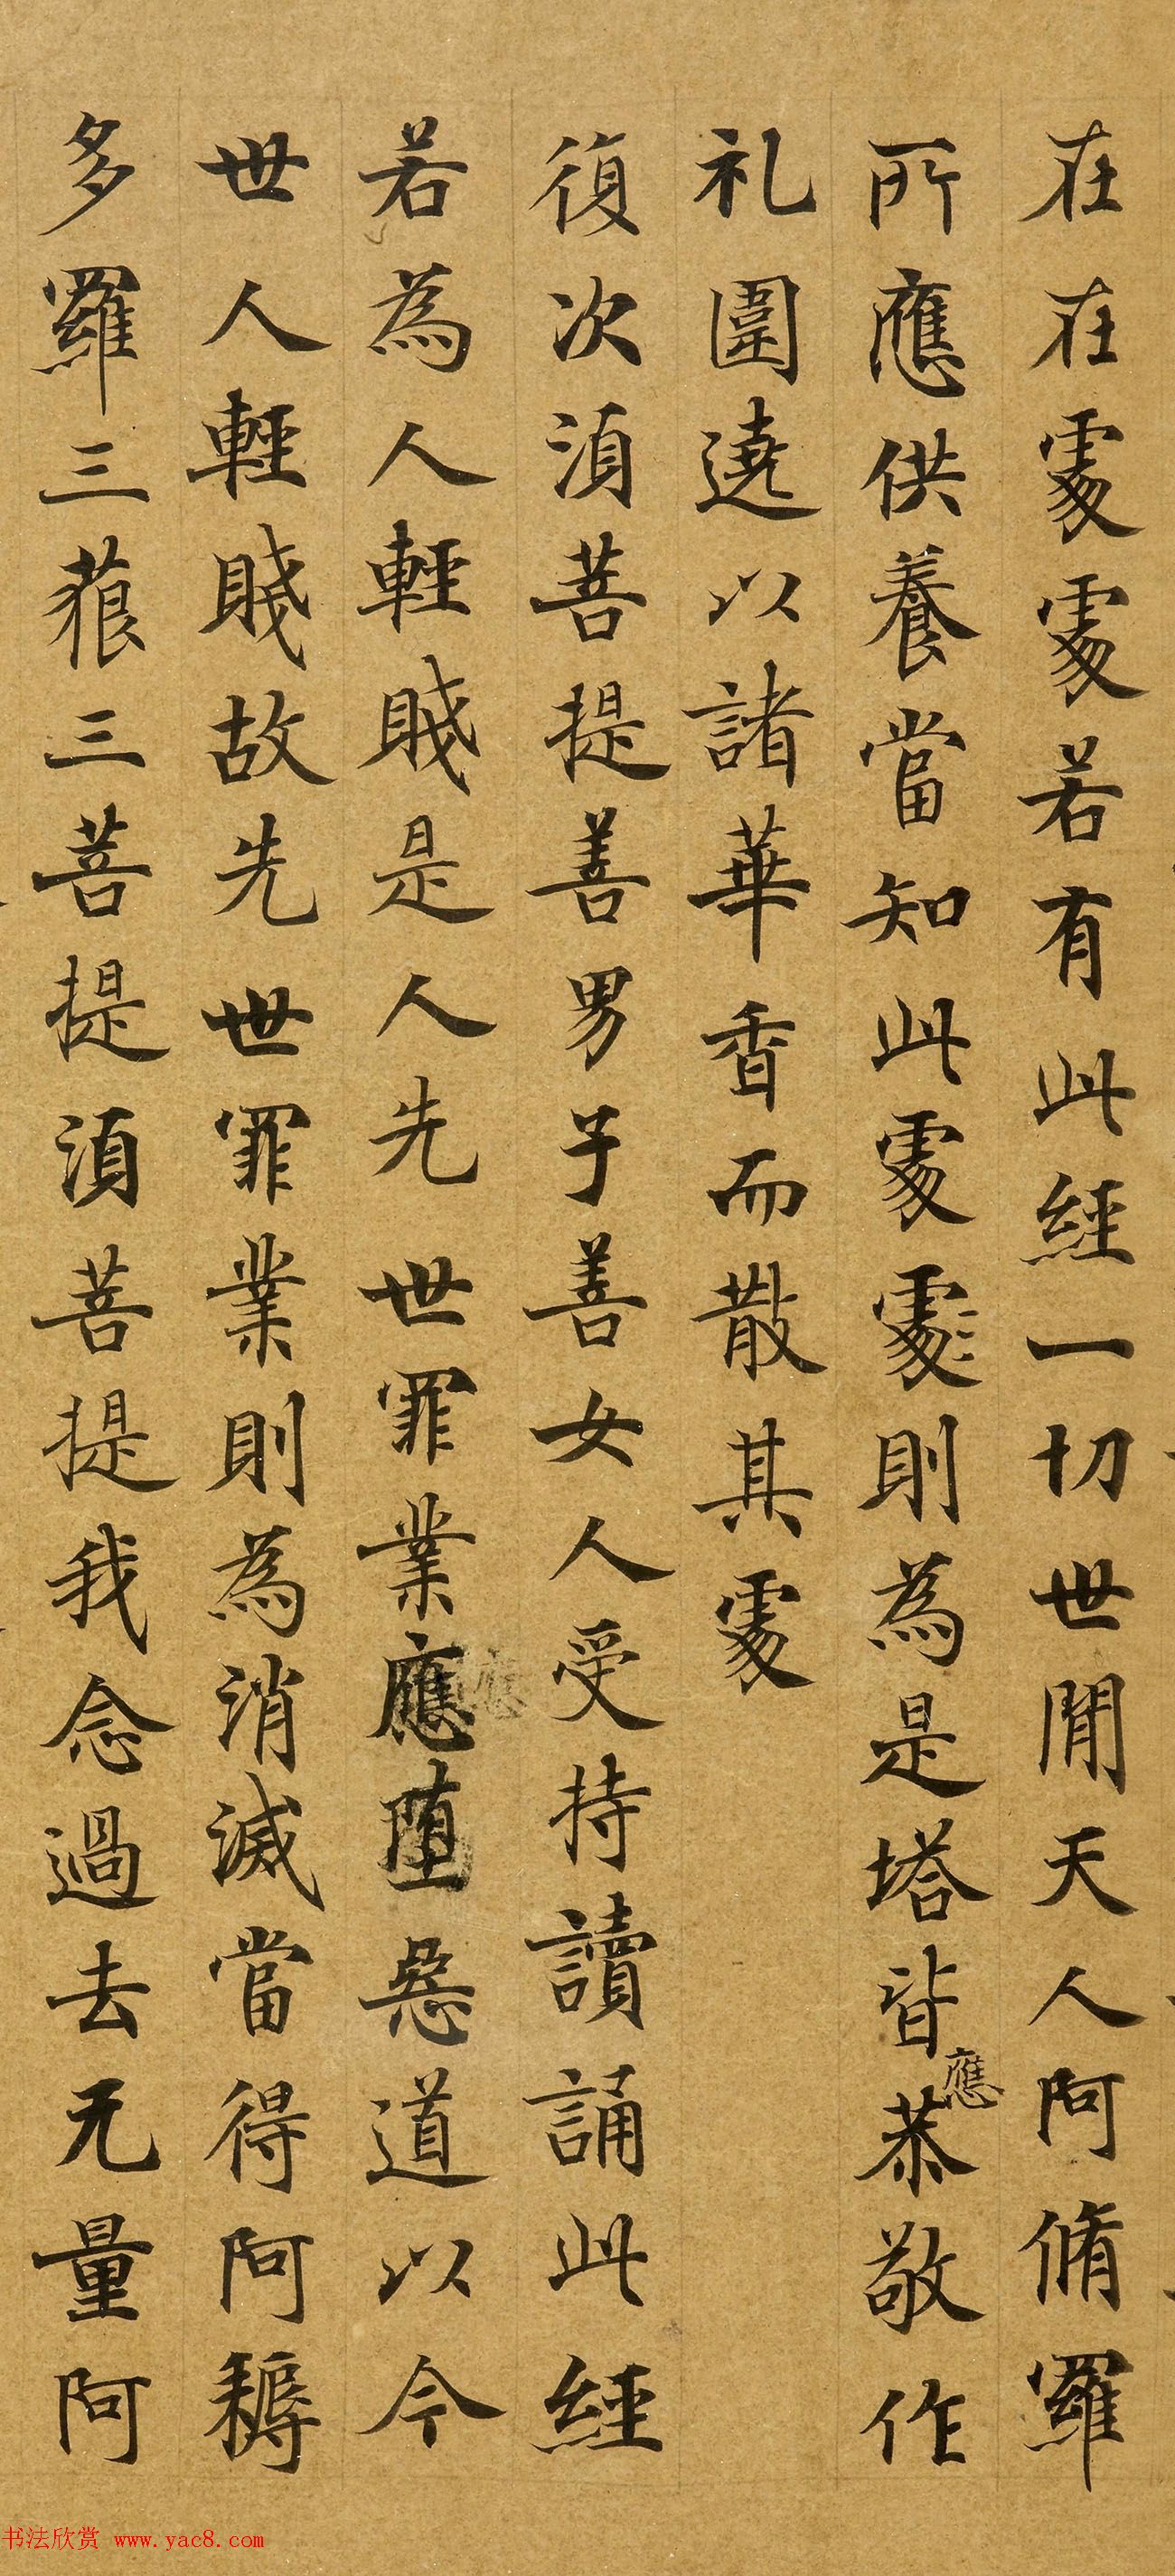 在在處處若有此經一切世間天人阿脩羅
所應供養當知此處處則為是塔皆應恭敬作
礼圍遶以諸華香而散其處
復次須菩提善男子善女人受持讀誦此經
若為人輕賤是人先世罪業應墮惡道以今
世人輕賤故先世罪業則為消滅當得阿耨
多羅三藐三菩提須菩提我念過去无量阿
书法欣赏 www.yac8.com